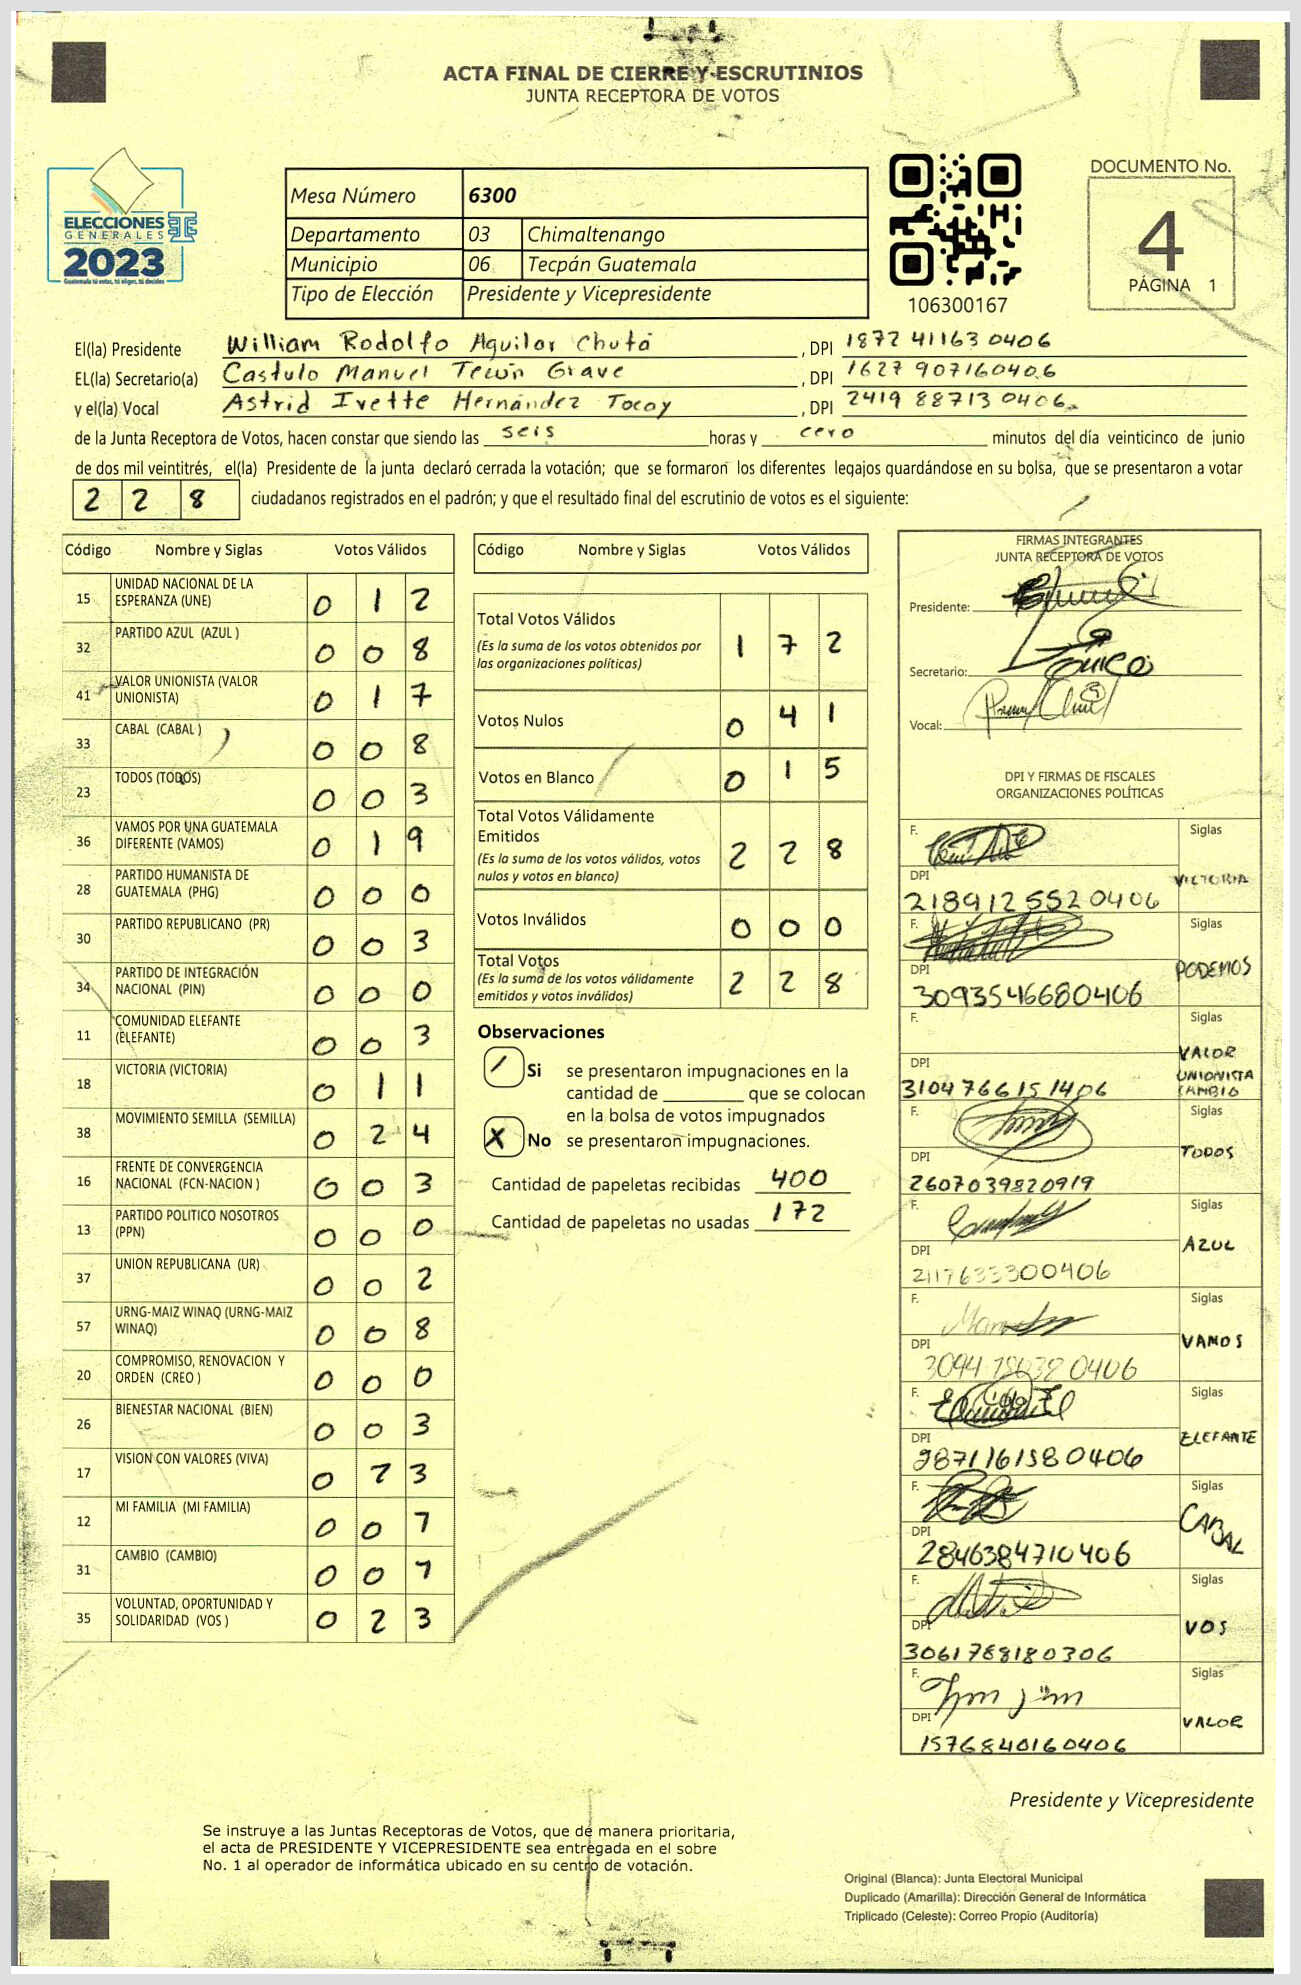 ACTA FINAL DE CIERRE Y ESCRUTINIOS
JUNTA RECEPTORA DE VOTOS
ELECCIONES
GENERALES
2023
Guatemala tú votas, tú eliges, tú decides
Mesa Número 6300
Departamento 03 Chimaltenango
Municipio 06 Tecpán Guatemala
Tipo de Elección Presidente y Vicepresidente
106300167
DOCUMENTO No.
4
PÁGINA 1
El(la) Presidente William Rodolfo Aguilar Chutá, DPI 1872 41163 0406
EL(la) Secretario(a) Castulo Manuel Tecún Grave, DPI 1627 90716 0406
y el(la) Vocal Astrid Ivette Hernández Tocoy, DPI 2419 88713 0406
de la Junta Receptora de Votos, hacen constar que siendo las seis horas y cero minutos del día veinticinco de junio
de dos mil veintitrés, el(la) Presidente de la junta declaró cerrada la votación; que se formaron los diferentes legajos guardándose en su bolsa, que se presentaron a votar
2 2 8 ciudadanos registrados en el padrón; y que el resultado final del escrutinio de votos es el siguiente:
Código Nombre y Siglas Votos Válidos
15 UNIDAD NACIONAL DE LA ESPERANZA (UNE) 0 1 2
32 PARTIDO AZUL (AZUL ) 0 0 8
41 VALOR UNIONISTA (VALOR UNIONISTA) 0 1 7
33 CABAL (CABAL ) 0 0 8
23 TODOS (TODOS) 0 0 3
36 VAMOS POR UNA GUATEMALA DIFERENTE (VAMOS) 0 1 9
28 PARTIDO HUMANISTA DE GUATEMALA (PHG) 0 0 0
30 PARTIDO REPUBLICANO (PR) 0 0 3
34 PARTIDO DE INTEGRACIÓN NACIONAL (PIN) 0 0 0
11 COMUNIDAD ELEFANTE (ELEFANTE) 0 0 3
18 VICTORIA (VICTORIA) 0 1 1
38 MOVIMIENTO SEMILLA (SEMILLA) 0 2 4
16 FRENTE DE CONVERGENCIA NACIONAL (FCN-NACION ) 0 0 3
13 PARTIDO POLITICO NOSOTROS (PPN) 0 0 0
37 UNION REPUBLICANA (UR) 0 0 2
57 URNG-MAIZ WINAQ (URNG-MAIZ WINAQ) 0 0 8
20 COMPROMISO, RENOVACION Y ORDEN (CREO ) 0 0 0
26 BIENESTAR NACIONAL (BIEN) 0 0 3
17 VISION CON VALORES (VIVA) 0 3
12 MI FAMILIA (MI FAMILIA) 0 0 7
31 CAMBIO (CAMBIO) 0 0 7
35 VOLUNTAD, OPORTUNIDAD Y SOLIDARIDAD (VOS ) 0 2 3
Código Nombre y Siglas Votos Válidos
Total Votos Válidos 1 7 2
(Es la suma de los votos obtenidos por
las organizaciones políticas)
Votos Nulos 0 4 1
Votos en Blanco 0 1 5
Total Votos Válidamente
Emitidos 2 2 8
(Es la suma de los votos válidos, votos
nulos y votos en blanco)
Votos Inválidos 0 0 0
Total Votos 2 2 8
(Es la suma de los votos válidamente
emitidos y votos inválidos)
Observaciones
Si se presentaron impugnaciones en la
cantidad de ________ que se colocan
en la bolsa de votos impugnados
X No se presentaron impugnaciones.
Cantidad de papeletas recibidas 400
Cantidad de papeletas no usadas 172
FIRMAS INTEGRANTES
JUNTA RECEPTORA DE VOTOS
Presidente:
Secretario:
Vocal:
DPI Y FIRMAS DE FISCALES
ORGANIZACIONES POLÍTICAS
F. Siglas
DPI VICTORIA
2189125520406
F. Siglas
DPI PODEMOS
3093546680406
F. Siglas
DPI VALOR UNIONISTA CAMBIO
3104766151406
F. Siglas
DPI TODOS
2607039820919
F. Siglas
DPI AZUL
2117633300406
F. Siglas
DPI VAMOS
0406
F. Siglas
DPI ELEFANTE
2871161580406
F. Siglas
DPI CABAL
2846384710406
F. Siglas
DPI VOS
3061788180306
F. Siglas
DPI VALOR
1576840160406
Presidente y Vicepresidente
Se instruye a las Juntas Receptoras de Votos, que de manera prioritaria,
el acta de PRESIDENTE Y VICEPRESIDENTE sea entregada en el sobre
No. 1 al operador de informática ubicado en su centro de votación.
Original (Blanca): Junta Electoral Municipal
Duplicado (Amarilla): Dirección General de Informática
Triplicado (Celeste): Correo Propio (Auditoría)